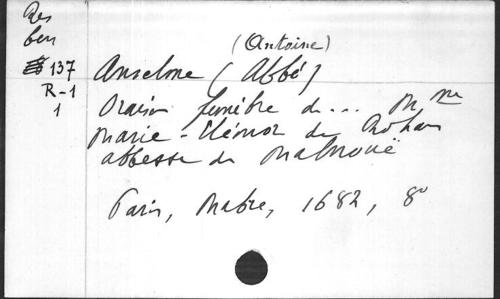 Res
(Antoine)
137 Anselme (Abbé)
R-1
1
Oraison funèbre de... Mme
Marie-Eléonor de Rohan
abbesse de Malnouë
Paris, Mabre, 1682, 8°